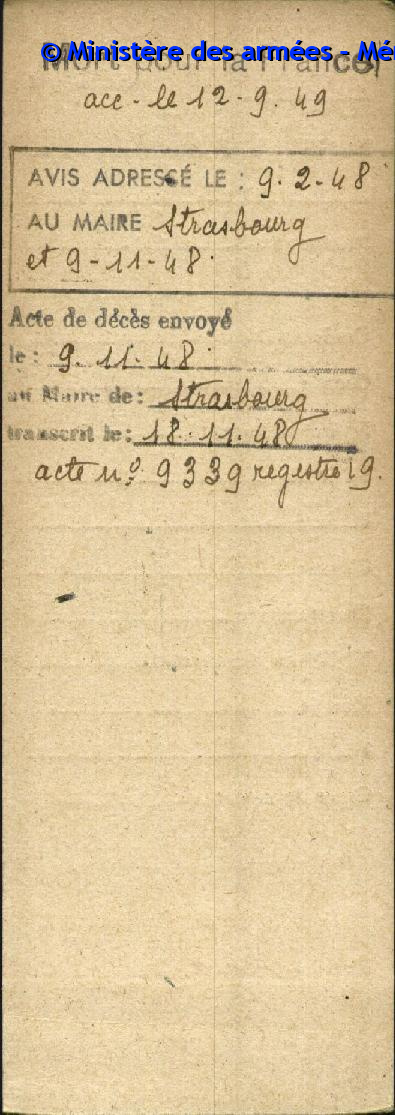 © Ministère des armées - Mé
Mort pour la France
acc - le 12 - 9. 49
AVIS ADRESSÉ LE : 9. 2 - 48
AU MAIRE Strasbourg
et 9 - 11 - 48.
Acte de décès envoyé
le : 9. 11. 48.
au Maire de : Strasbourg
transcrit le : 18. 11. 48
acte n° 9339 registre 19.